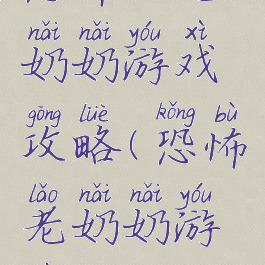 nǎi nǎi yóu xì
奶奶游戏
gōng lüè kǒng bù
攻略(恐怖
lǎo nǎi nǎi yóu
老奶奶游